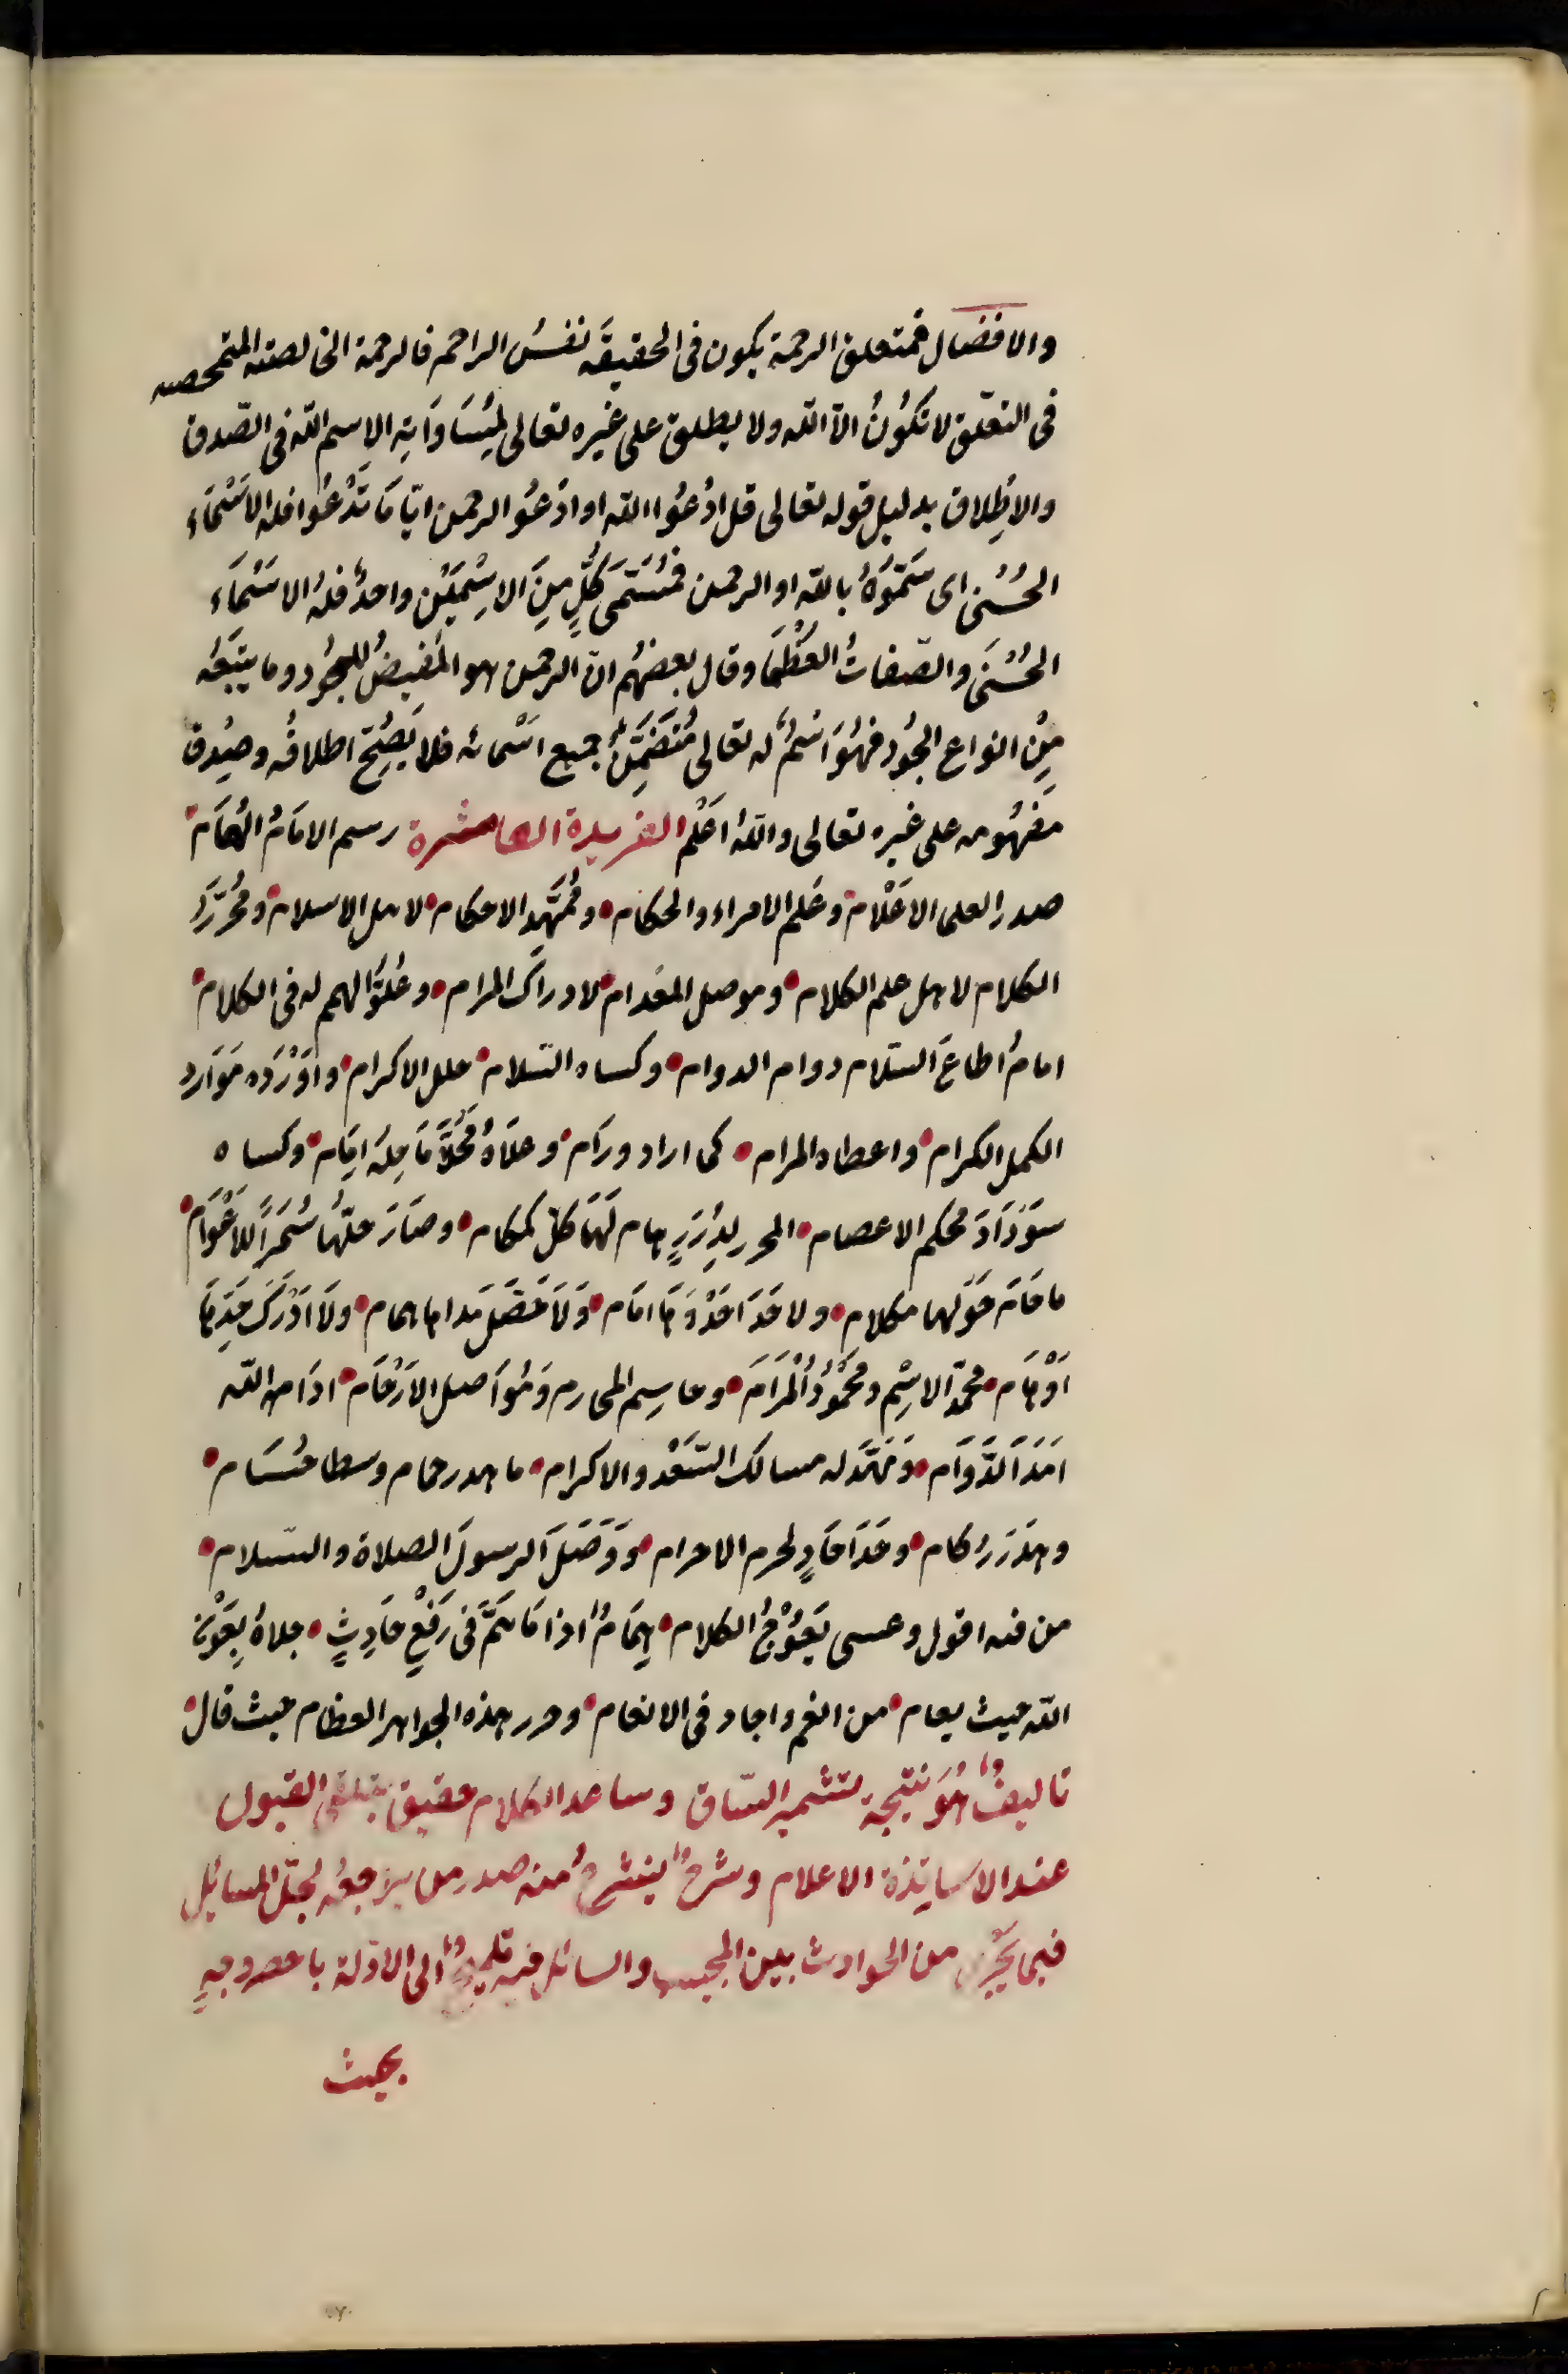 والافضال فمتعلق الرحمة يكون فى الحقيقَه نفسُ الراحم فالرحمة الخالصة المتمحصه
فى التعلّق لا تكُونُ الاّ الله ولا يطلق على غيره تعالى لمِسَاوَاتِه الاسم الله فى الصّدق
والاطِلاق بدليل قوله تعالى قل ادْعُوا الله او ادْعُو الرحمن ايّاَ مَا تَدْعُوا فله الاَسْمَاء
الحُسْنى اى سَمّوُهُ بالله او الرحمن فمُسَمَّى كُلٍّ مِنَ الاسِْمَيْن واحدٌ فلهُ الاسْمَاء
الحُسْنَى والصّفاتُ العُظْمَا وقال بعضهُم انّ الرحمن هو المُفيضُ للجُود وما يتبَعُه
مِنْ انواع الجُود فهُوَ اسْمٌ له تعالى مُتَضَمِّنٌ جميع اسْمائه فلا يَصِحّ اطلاقُه وصِدق
مفهُومه على غيره تعالى واللهُ اَعْلم الفريدة العاشرة رسم الامَامُ الهُمَام
صدر العلى الاَعْلام وعَلم الامراء والحكام ومُمَهّد الاحكام لاهل الاسلام ومُحُرّر
الكلام لاهل علم الكلام وموصل المقدام لادراك المرام وعُلوُّ الهمم له فى الكلام
امامٌ اطاعَ السّلام دوام الدوام وكساه السّلام حلل الاكرام واَوْرَدَه مَوَارد
الكمل الكرام واعطاه المرام كما اراد ورَام وحلاّهُ مَحَلاًّ مَا حِلّه اِمَام وكساه
سوَدَادَ محكم الاعصام المحرر لِدُرَرٍ هام لَهَا كلّ كمكام وصَارَ حلّهَا سُمَراً للاَعْوَام
ما حَامَ حَوْلها مكلام ولا حَدَا حَدْوَهَا امَام وَلاَ حَصّلَ مَداها همام ولَا اَدْرَكَ حَدِّهَا
اَوْهَام محمّد الاسِْم ومحمُوُد المَرَامَ وحاسِم المحارم وَمُوَاصل الاَرْحَام ادَامه الله
اَمَدَ الدَّوَام وَمَهَّدَ له مسالك السّعْد والاكرام ما هدر حمام وسطا حُسَام
وهَدَرَ رُكام وحَدَا حَادٍ لحرم الاحرام ووَصَلَ الرسولَ الصلاة والسّلام
من فنه اقول وعسى يَعُوْجُ الكلام هِمَامٌ اذا مَا هَمَّ فى رَفْعِ حَادِثٍ جلاهُ بِعَوْن
الله حيث يعام من الغم واجاد فى الانعام وحرر هذه الجواهر العظام حيث قال
تاليفٌ هُوَ نتيجة تشمير السّاق وساعد الكلام حقيق بتلقى القبول
عند الاساتذة الاعلام وشرحٌ ينشرحُ منه صدر من يراجعُه لجُلّ المسائل
فيما يَجْرى من الحوادث بين المجيب والسائل فيه تلميحٌ الى الادّلة باحصر وجهٍ
بحيث